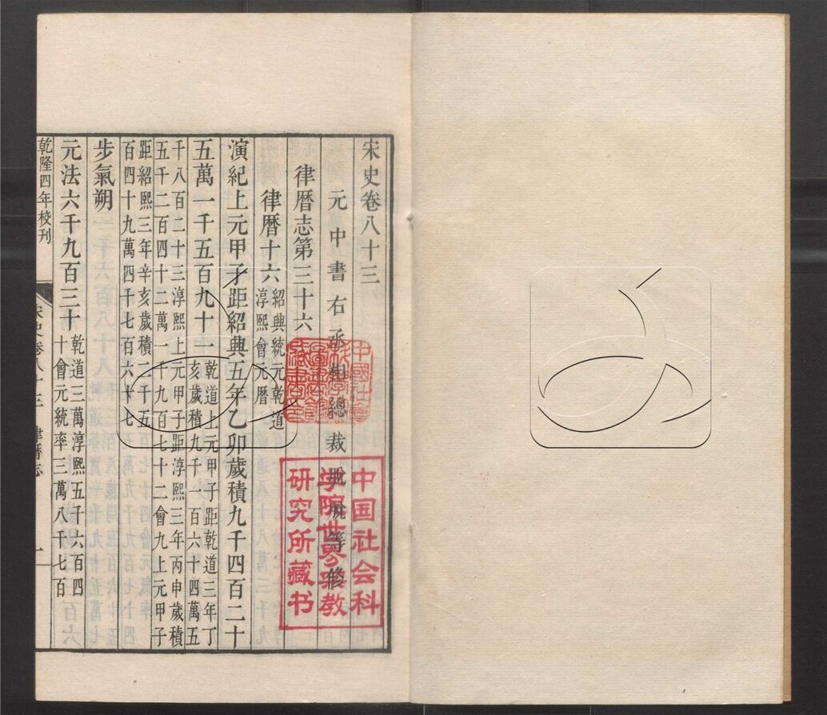 宋史卷八十三
元中書右丞相總裁脫脫等修
律曆志第三十六
律曆十六 紹興統元乾道
淳熙會元曆
演紀上元甲子距紹興五年乙卯歲積九千四百二十
五萬一千五百九十一 乾道上元甲子距乾道三年丁
亥歲積九千一百六十四萬五
千八百二十三淳熙上元甲子距淳熙三年丙申歲積
五千二百四十二萬一千九百七十二會九上元甲子
距紹熙三年辛亥歲積二千五
百四十九萬四千七百六十七
步氣朔
元法六千九百三十 乾道三萬淳熙五千六百四
十會元統率三萬八千七百
乾隆四年校刊
宋史卷八十三 律曆志
一
中国社会科
学院世界宗教
研究所藏书